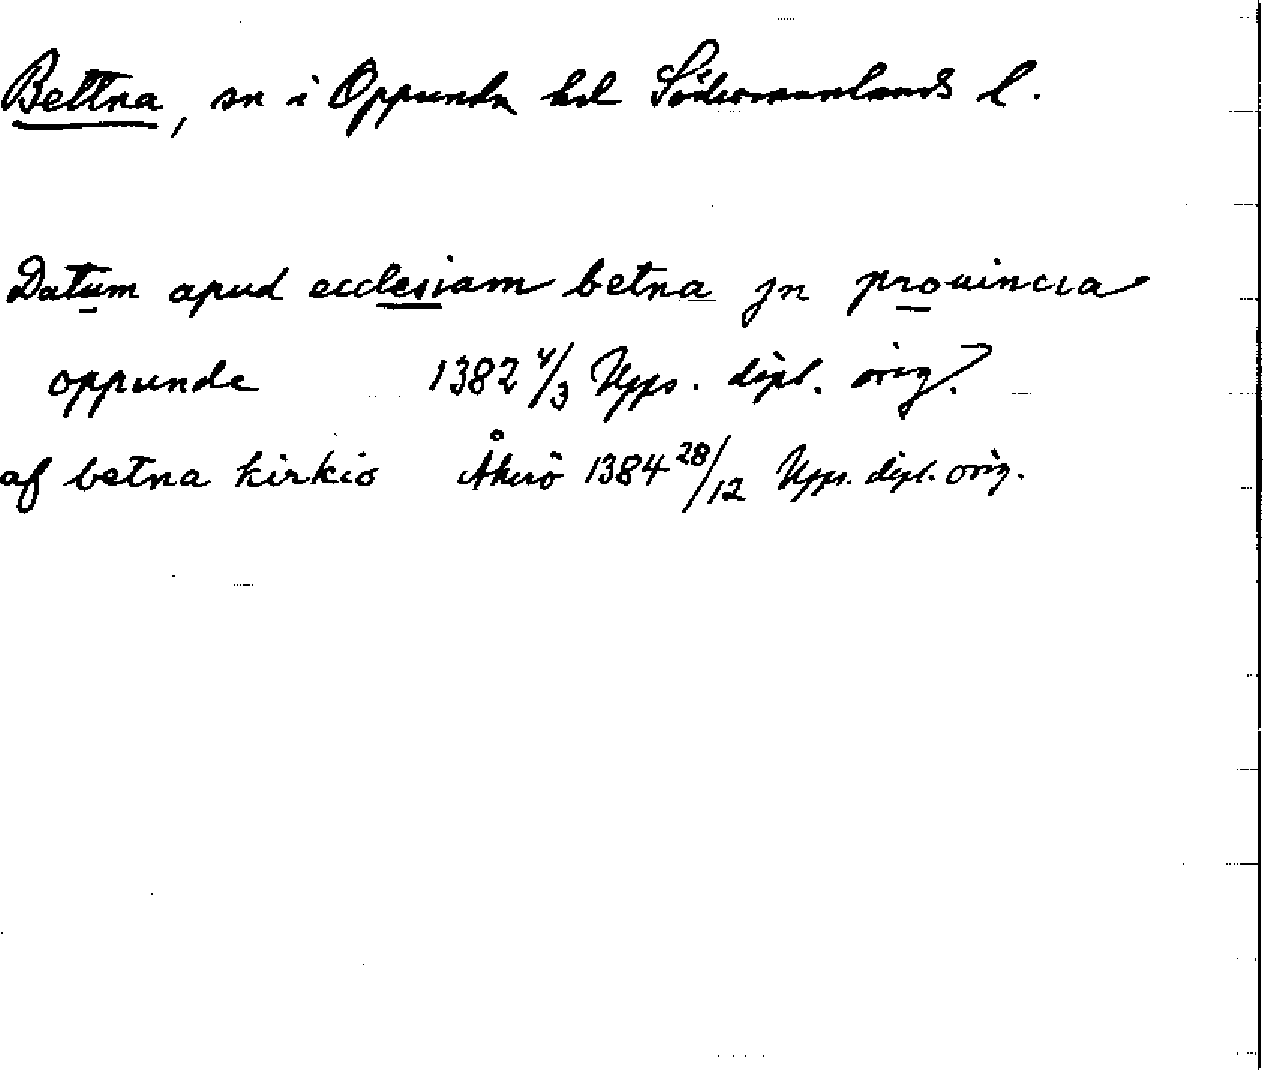 Bettna, sn i Oppunda hd Södermanlands l.
Datum apud ecclesiam betna jn prouincia
oppunde 1382 4/3 Upps. dipl. orig.
af betna kirkio Åkerö 1384 28/12 Upps. dipl. orig.